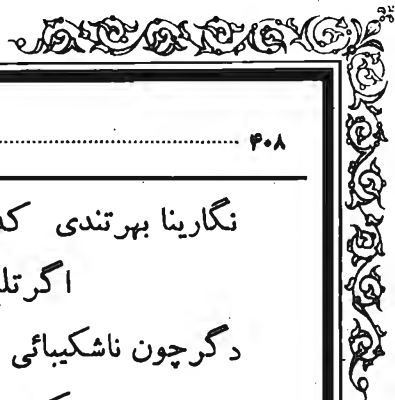 ۴۰۸
نگارینا بهر تندی
اگر
دگر چون ناشکیبائی